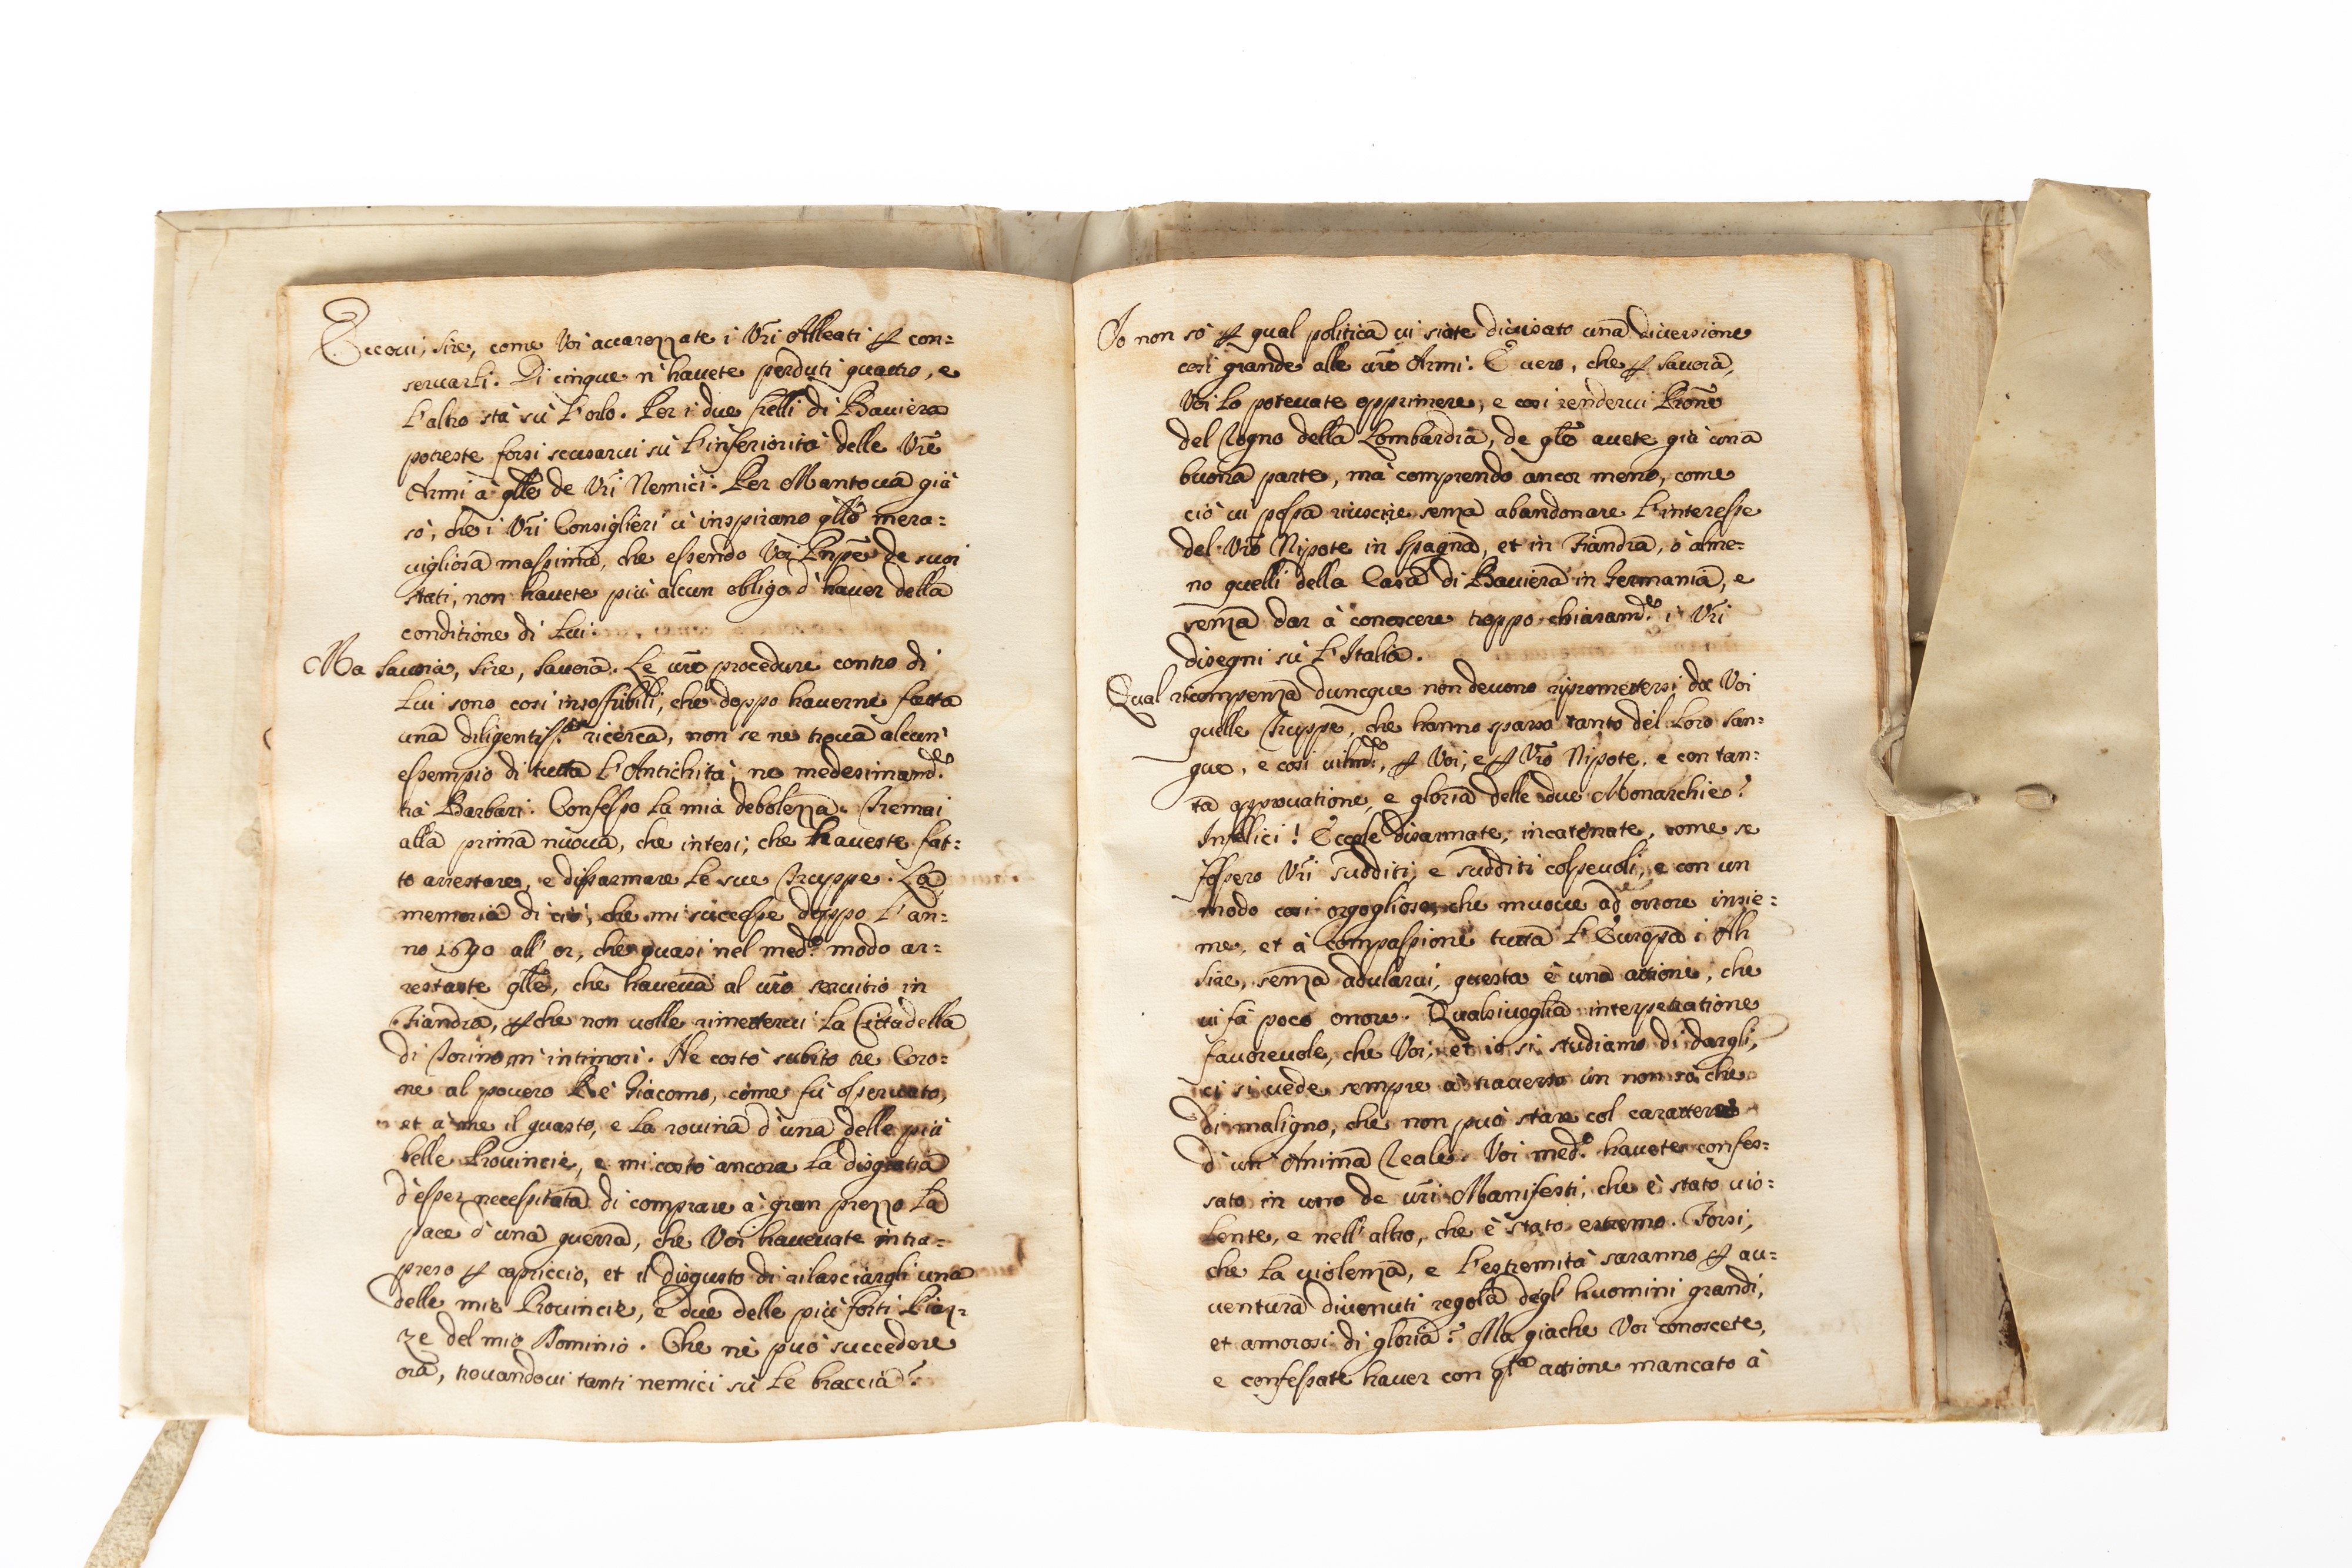 Eccovi, Sire, come Voi accarezzate i Vri Alleati ꝑ con=
servarli. Di cinque n'havete perduti quattro, e
l'altro stà sù l'orlo. Per i due frelli di Baviera
potreste forsi scusarvi sù l'inferiorità delle Vre
Armi à qlle de Vri Nemici. Per Mantova già
sò, che i Vri Consiglieri vi inspirano qlla mera=
vigliosa massima, che essendo Voi Pnpe de suoi
stati, non havete più alcun obligo d'haver della
conditione di Lui.
Ma Savoia, Sire, Savoia. Le vre procedure contro di
Lui sono così insoffribili, che doppo haverne fatta
una diligentiss.ma ricerca, non se ne trova alcun'
essempio di tutta l'Antichità, ne medesimamde.
trà Barbari. Confesso la mia debolezza. Tremai
alla prima nuova, che intesi, che haveste fat=
to arrestare, e dissarmare le sue Truppe. La
memoria di ciò, che mi successe doppo l'an=
no 1690 all'or, che quasi nel med.o modo ar=
restaste qlle, che haveva al vro servitio in
Fiandra, ꝑche non volle rimettervi la Cittadella
di Torino, m'intimorì. Ne costò subito tre Coro=
ne al povero Rè Giacomo, come fù osservato,
et à me il guasto, e la rovina d'una delle più
belle Provincie, e mi costò ancora la disgratia
d'esser necessitata di comprare à gran prezzo la
pace d'una guerra, che Voi havevate intra=
preso ꝑ capriccio, et il disgusto di rilasciargli una
delle mie Provincie, e due delle più forti Piaz=
ze del mio Dominio. Che ne può succedere
ora, trovandovi tanti nemici sù le braccia?
Io non sò ꝑ qual politica vi siate divisato una diversione
così grande alle vre Armi. E vero, che ꝑ Savoia,
Voi lo potevate opprimere, e così rendervi Prone
del Regno della Lombardia, de qle avete già una
buona parte, mà comprendo ancor meno, come
ciò vi possa riuscire senza abandonare l'interesse
del Vro Nipote in Spagna, et in Fiandra, ò alme=
no quelli della Casa di Baviera in Germania, e
senza dar à conoscere troppo chiaramde. i Vri
disegni sù l'Italia.
Qual ricompenza dunque non devono ripromettersi da Voi
quelle Truppe, che hanno sparso tanto del loro San=
gue, e così utilmde., ꝑ Voi, e ꝑ Vro Nipote, e con tan=
ta approvatione, e gloria delle due Monarchie?
Infelici! Eccole disarmate, incatenate, come se
fossero Vri sudditi, e sudditi colpevoli, e con un
modo così orgoglioso, che muove ad orrore insie=
me, et à compassione tutta l'Europa. Ah
Sire, senza adularvi, questa è una attione, che
vi fà poco onore. Qualsivoglia interpetratione
favorevole, che Voi, et io si studiamo di dargli,
ci si vede sempre à traverso un non sò che
di maligno, che non può stare col carattere
d'un'Anima Reale. Voi med.o havete confes=
sato in uno de vri Manifesti, che è stato vio=
lente, e nell'altro, che è stato estremo. Forsi,
che la violenza, e l'estremità saranno ꝑ av=
ventura divenuti regola degl'huomini grandi,
et amorosi di gloria? Ma giache Voi conoscete,
e confessate haver con qta attione mancato à